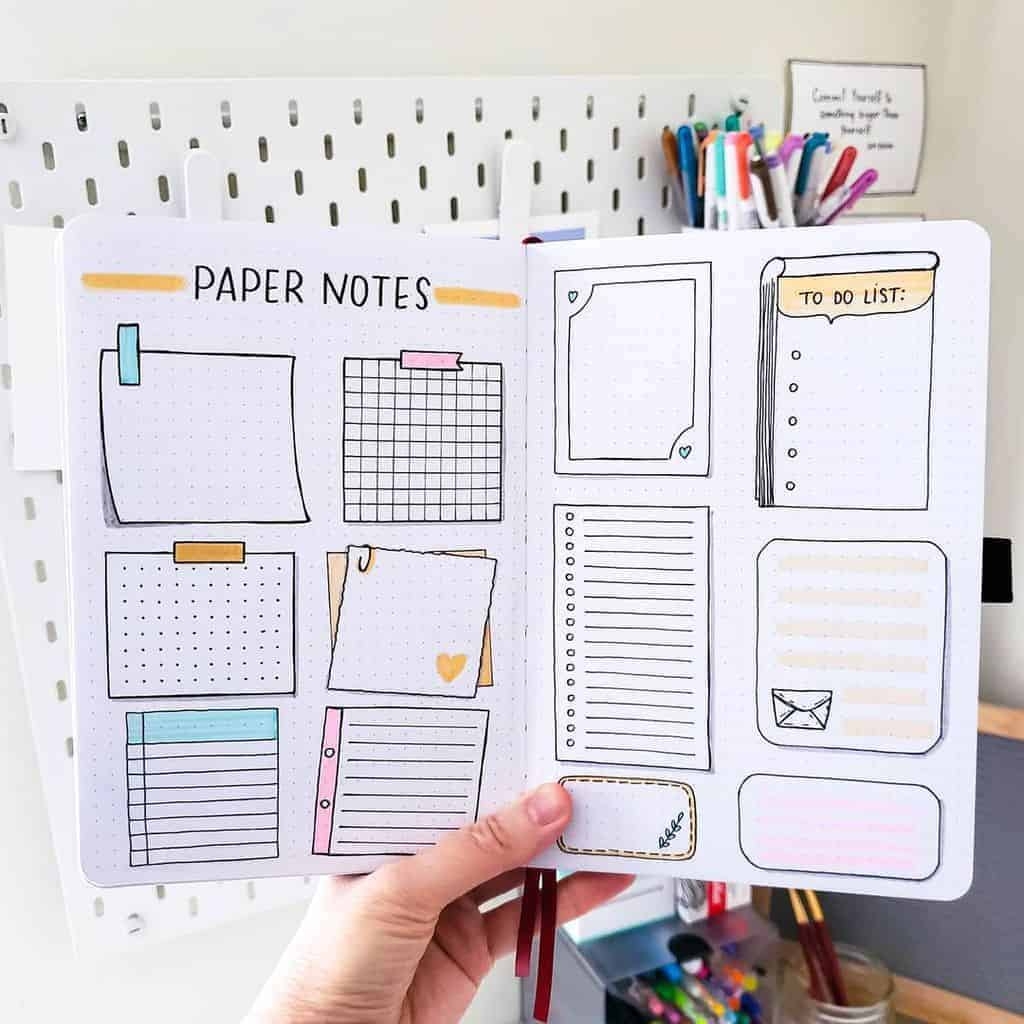 Commit Yourself to
something bigger than
Yourself
PAPER NOTES
TO DO LIST: